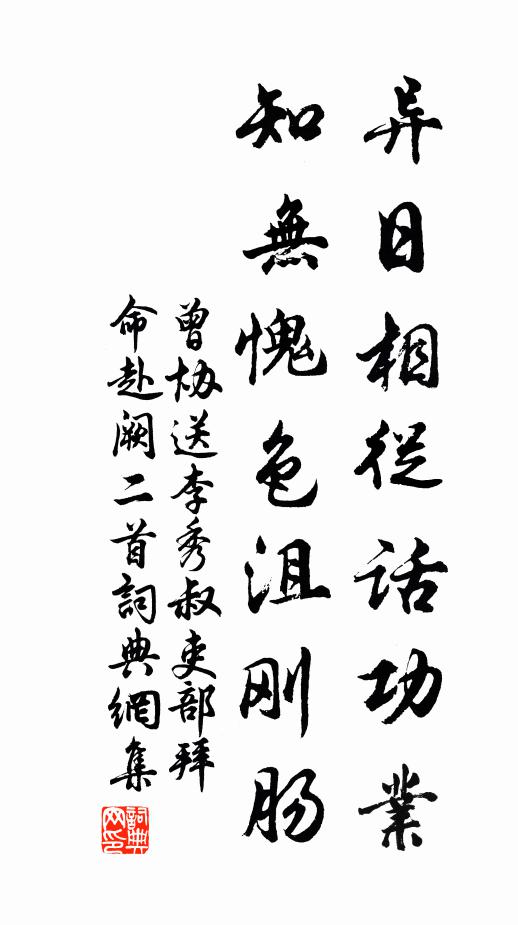 异日相從话功業
知無愧色沮刚肠
曾协送李秀叔吏部拜
命赴阙二首詞典網集
詞典网印